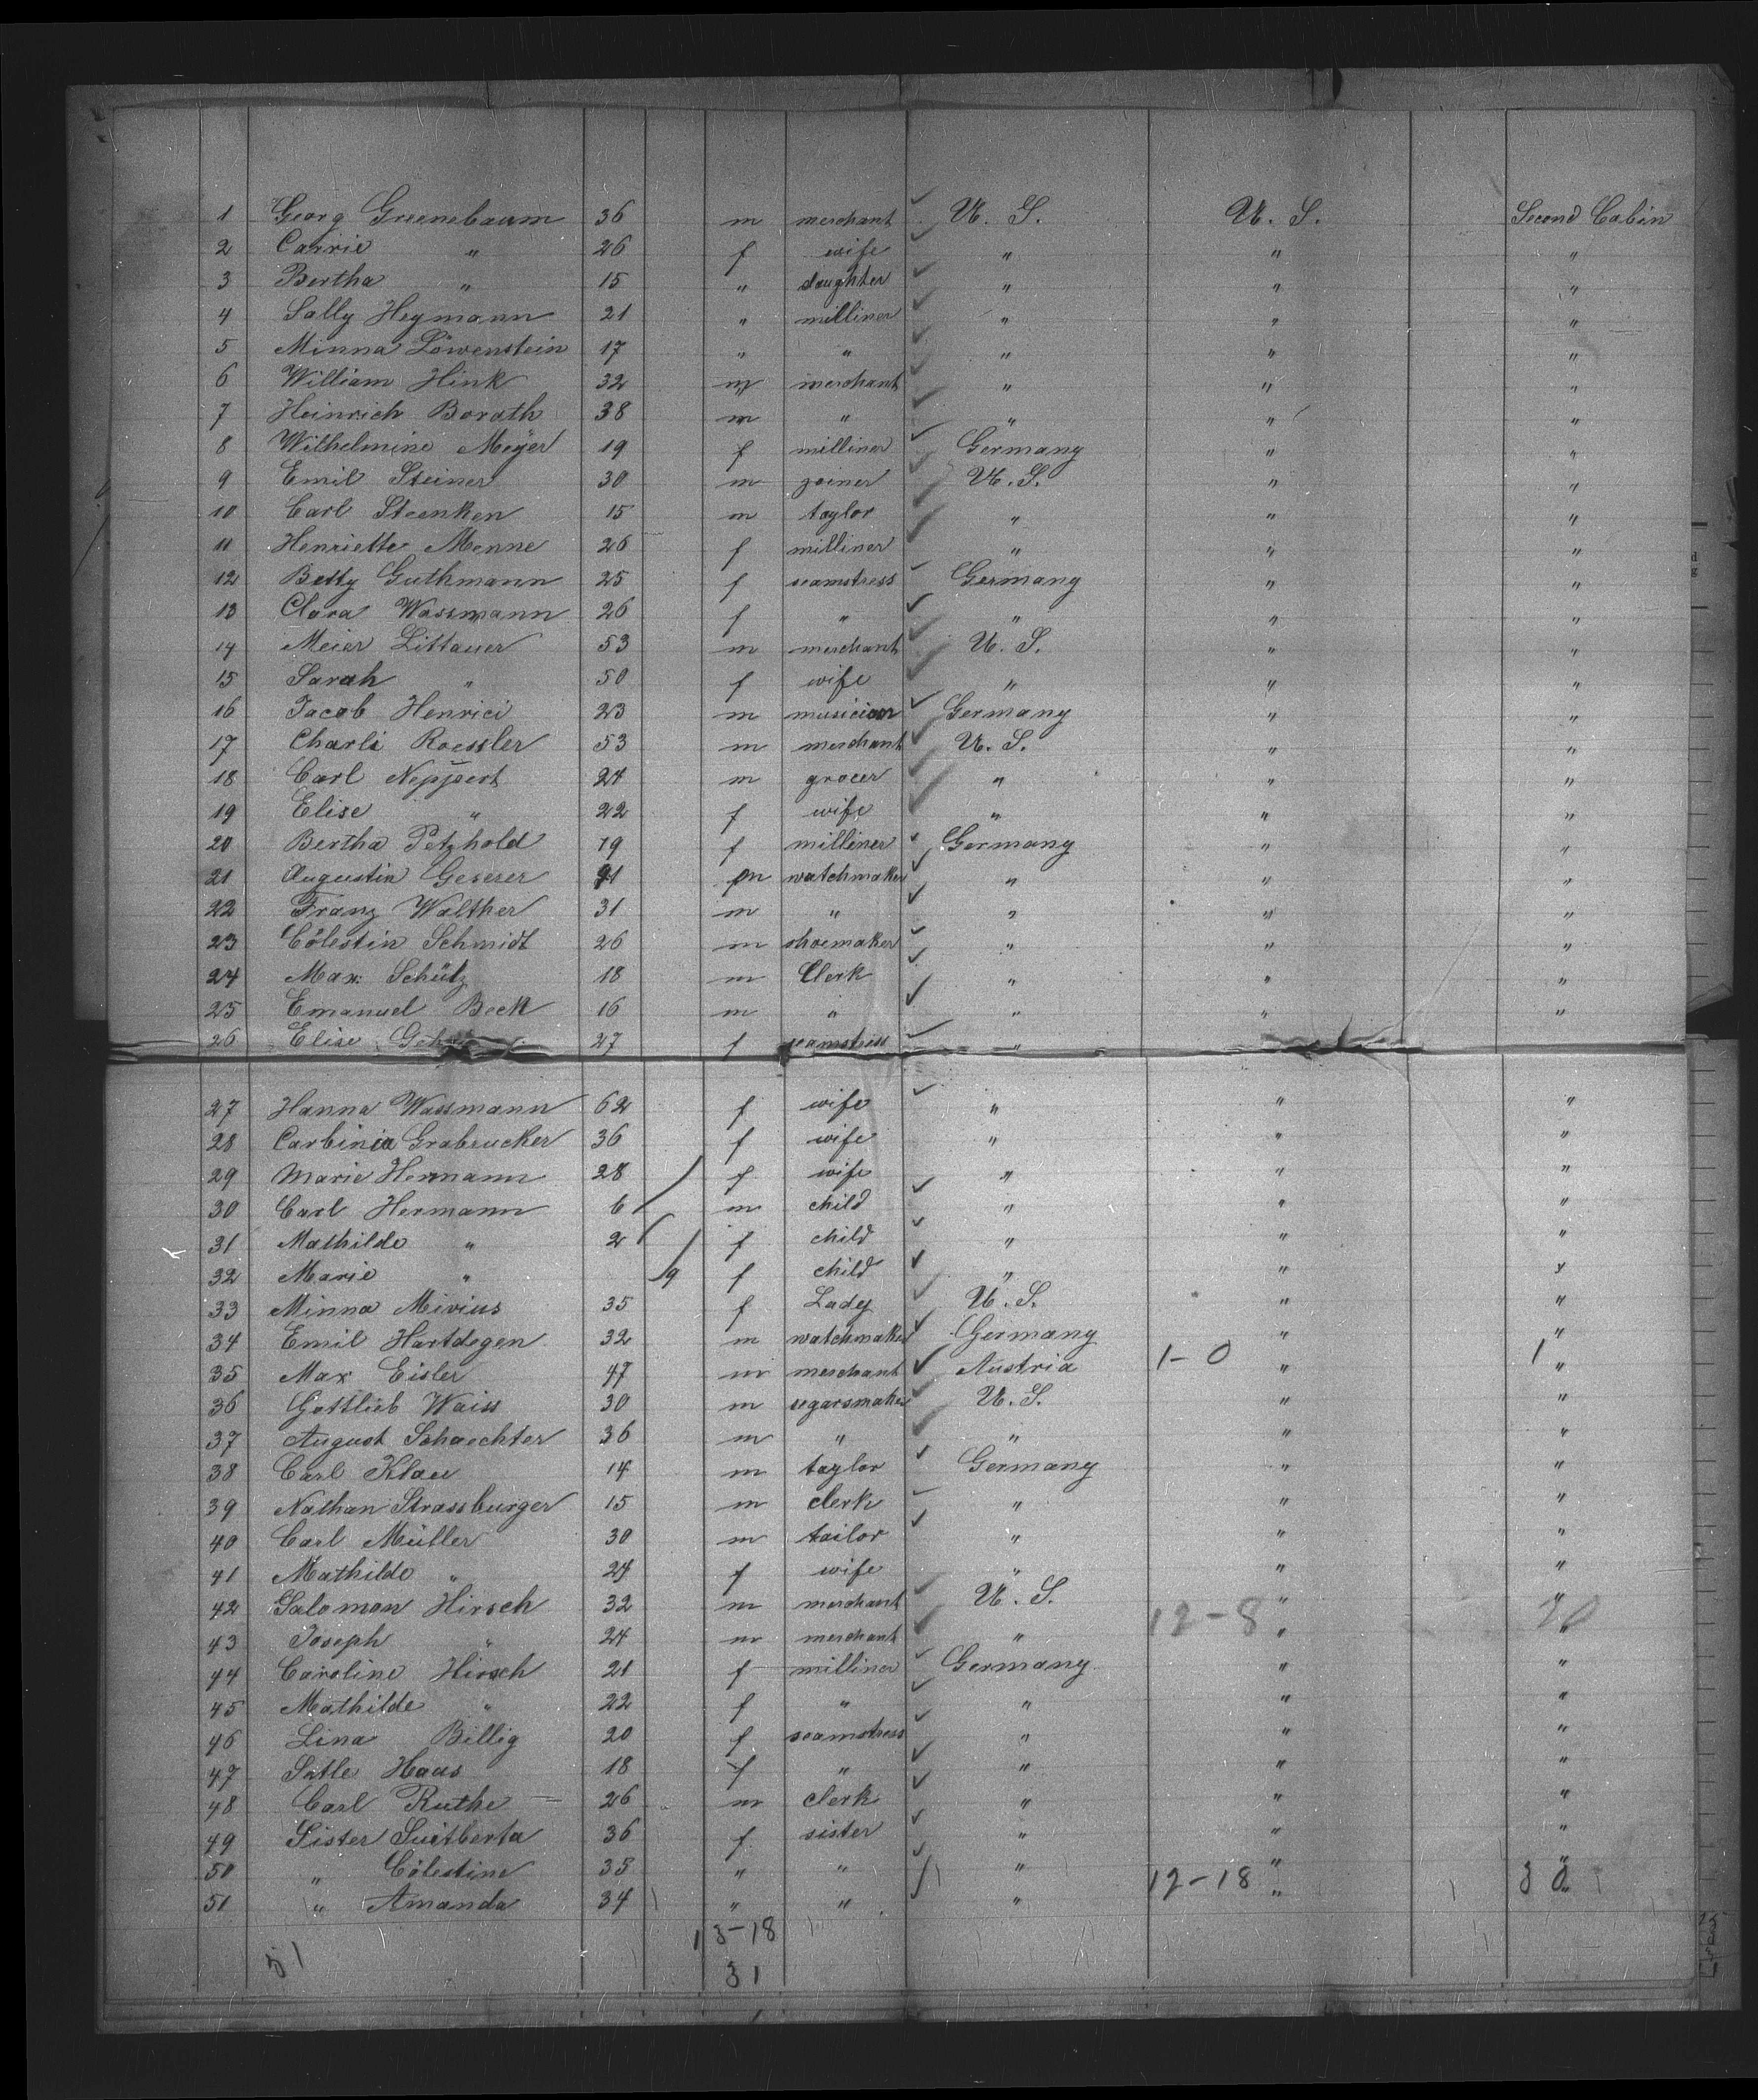 1 Georg Greenebaum 36 m merchant U. S. U. S. Second Cabin
2 Carrie " 26 f wife " " "
3 Bertha " 15 " daughter " " "
4 Sally Heymann 21 " milliner " " "
5 Minna Löwenstein 17 " " " " "
6 William Hink 32 m merchant " " "
7 Heinrich Borath 38 m " " " "
8 Wilhelmine Meyer 19 f milliner Germany " "
9 Emil Steiner 30 m joiner U. S. " "
10 Carl Steenken 15 m taylor " " "
11 Henriette Menne 26 f milliner " " "
12 Betty Guthmann 25 f seamstress Germany " "
13 Clara Wassmann 26 f " " " "
14 Meier Littauer 53 m merchant U. S. " "
15 Sarah " 50 f wife " " "
16 Jacob Henrici 23 m musician Germany " "
17 Charli Roessler 53 m merchant U. S. " "
18 Carl Neppert 24 m grocer " " "
19 Elise " 22 f wife " " "
20 Bertha Petzhold 19 f milliner Germany " "
21 Augustin Geserer m watchmaker " " "
22 Franz Walther 31 m " " " "
23 Cölestin Schmidt 26 m shoemaker " " "
24 Max Schütz 18 m Clerk " " "
25 Emanuel Beck 16 m " " " "
26 Elise 27 f seamstress "
27 Hanna Wassmann 62 f wife " " "
28 Carbinia Grabrucker 36 f wife " " "
29 Marie Hermann 28 f wife " " "
30 Carl Hermann 6 m child " " "
31 Mathilde " 2 f child " " "
32 Marie " 9 f child " " "
33 Minna Mivius 35 f Lady U. S. " "
34 Emil Hartdegen 32 m watchmaker Germany " "
35 Max Eisler 47 m merchant Austria 1-0 " 1 "
36 Gottlieb Waiss 30 m segarsmaker U. S. " "
37 August Schaechter 36 m " " " "
38 Carl Klau 14 m taylor Germany " "
39 Nathan Strassburger 15 m clerk " " "
40 Carl Müller 30 m tailor " " "
41 Mathilde " 24 f wife " " "
42 Salomon Hirsch 32 m merchant U. S. " "
43 Joseph " 24 m merchant " 12-8 " 20 "
44 Caroline Hirsch 21 f milliner Germany " "
45 Mathilde " 22 f " " " "
46 Lina Billig 20 f seamstress " " "
47 Haas 18 f " " " "
48 Carl Ruthe 26 m clerk " " "
49 Sister Suitberta 36 f sister " " "
50 " Cölestine 35 " " " " "
51 " Amanda 34 " " " 12-18 " 30 "
13-18
51 31